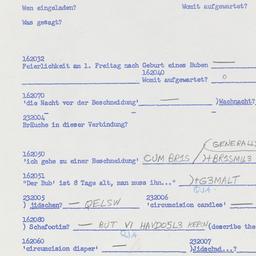 Wen einladen? Womit aufgewartet?
Was gesagt?
162032
Feierlichkeit am 1. Freitag nach Geburt eines Buben
162040
Womit aufgewartet? 0
162070
'die Nacht vor der Beschneidung' )Wachnacht?
232004
Bräuche in dieser Verbindung?
(GENERAL
162050
'ich gehe zu einer Beschneidung' CUM BRIS /+BRISMIL3
162051
"Der Bub' ist 8 Tage alt, man muss ihn..." )+G3MALT
232005 232006
) jidschen? — QELSW 'circumcision candles'
162080
) Schefoetim? — BUT VI HAVDO5L3 (describe the
162060 232007
'circumcision diaper' — )Jidschd...?